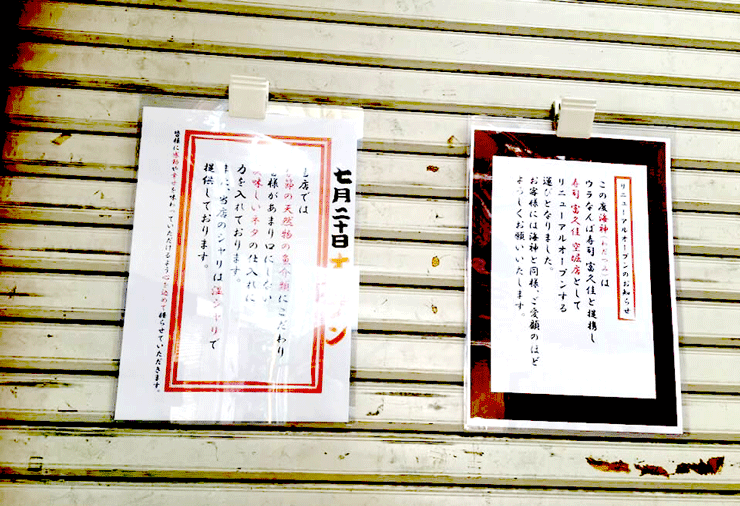 リニューアルオープンのお知らせ
この度海神(わだつみ)は
ウラなんば寿司 富久佳と提携し
寿司 富久佳 空堀店として
リニューアルオープンする
運びとなりました。
お客様には海神と同様、ご愛顧のほど
よろしくお願いいたします。
七月二十日
店では
節の天然物の魚介類にこだわり
様があまり口にしない
味しいネタの仕入れに
力を入れております。
また、当店のシャリは
シャリで
提供しております。
皆様に感動や幸せを味わっていただけるよう心を込めて握らせていただきます。